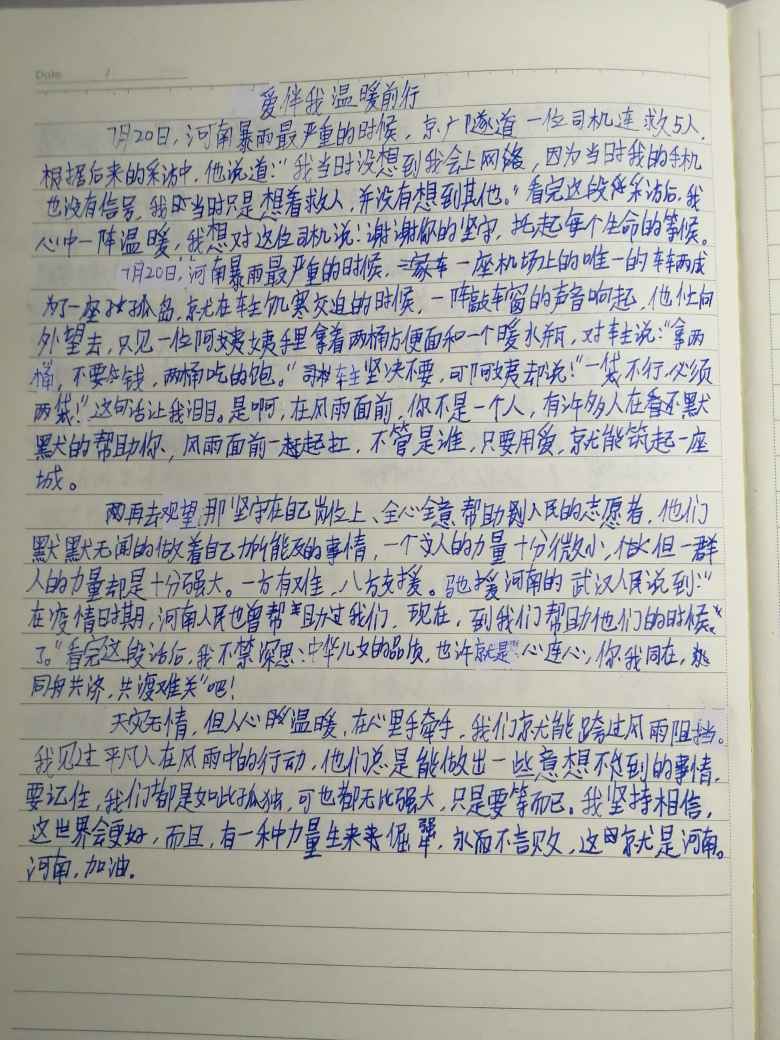 Date      /
爱伴我温暖前行
7月20日，河南暴雨最严重的时候，京广隧道一位司机连救5人，
根据后来的采访中，他说道："我当时没想到我会上网络，因为当时我的手机
也没有信号，我当时只是想着救人，并没有想到其他。"看完这段采访后，我
心中一阵温暖，我想对这位司机说：谢谢你的坚守，托起每个生命的等候。
7月20日，河南暴雨最严重的时候，一座机场上的唯一的车辆成
为了一座孤岛，就在车主饥寒交迫的时候，一阵敲车窗的声音响起，他往向
外望去，只见一位阿姨手里拿着两桶方便面和一个暖水瓶，对车主说："拿两
桶，不要钱，两桶吃的饱。"车主坚决不要，可阿姨却说："一袋不行，必须
两袋！"这句话让我泪目。是啊，在风雨面前，你不是一个人，有许多人在看不默
默的帮助你，风雨面前一起扛，不管是谁，只要用爱，就能筑起一座
城。
再去观望，那坚守在自己岗位上、全心全意帮助人民的志愿者，他们
默默无闻的做着自己力所能及的事情，一个人的力量十分微小，但一群
人的力量却是十分强大。一方有难，八方支援。驰援河南的武汉人民说到："
在疫情时期，河南人民也曾帮助过我们，现在，到我们帮助他们的时候
了。"看完这段话后，我不禁深思：中华儿女的品质，也许就是"心连心，你我同在，
同舟共济，共渡难关"吧！
天灾无情，但人心温暖，在心里手牵手，我们就能跨过风雨阻挡。
我见过平凡人在风雨中的行动，他们总是能做出一些意想不到的事情，
要记住，我们都是如此孤独，可也都无比强大，只是要等而已。我坚持相信，
这世界会更好，而且，有一种力量生来倔犟，永而不言败，这就是河南。
河南，加油.